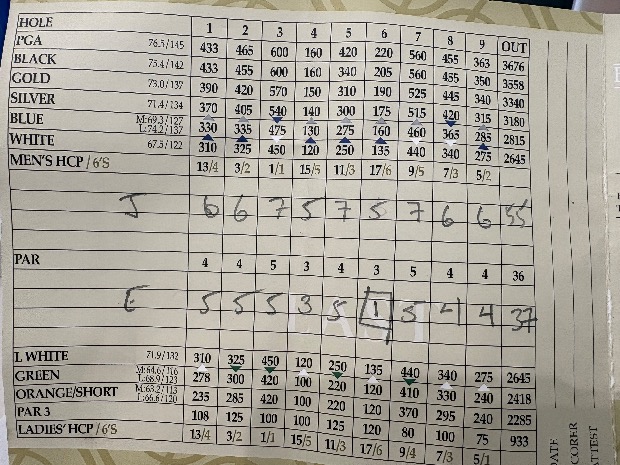 HOLE 1 2 3 4 5 6 7 8 9 OUT
PGA 76.5/145 433 465 600 160 420 220 560 455 363 3676
BLACK 75.4/142 433 455 600 160 340 205 560 455 350 3558
GOLD 73.0/137 390 420 570 150 310 190 525 445 340 3340
SILVER 71.4/134 370 405 540 140 300 175 515 420 315 3180
BLUE M:69.3/127 L:74.2/137 330 335 475 130 275 160 460 365 285 2815
WHITE 67.5/122 310 325 450 120 250 135 440 340 275 2645
MEN'S HCP / 6'S 13/4 3/2 1/1 15/5 11/3 17/6 9/5 7/3 5/2
J 6 6 7 5 7 5 7 6 6 55
PAR 4 4 5 3 4 3 5 4 4 36
E 5 5 5 3 5 1 5 4 4 37
L WHITE 71.9/132 310 325 450 120 250 135 440 340 275 2645
GREEN M:64.6/116 L:68.9/123 278 300 420 100 220 120 410 330 240 2418
ORANGE/SHORT M:63.2/115 L:66.6/120 235 285 420 100 220 120 370 295 240 2285
PAR 3 108 125 100 100 125 120 80 100 75 933
LADIES' HCP / 6'S 13/4 3/2 1/1 15/5 11/3 17/6 9/4 7/3 5/1